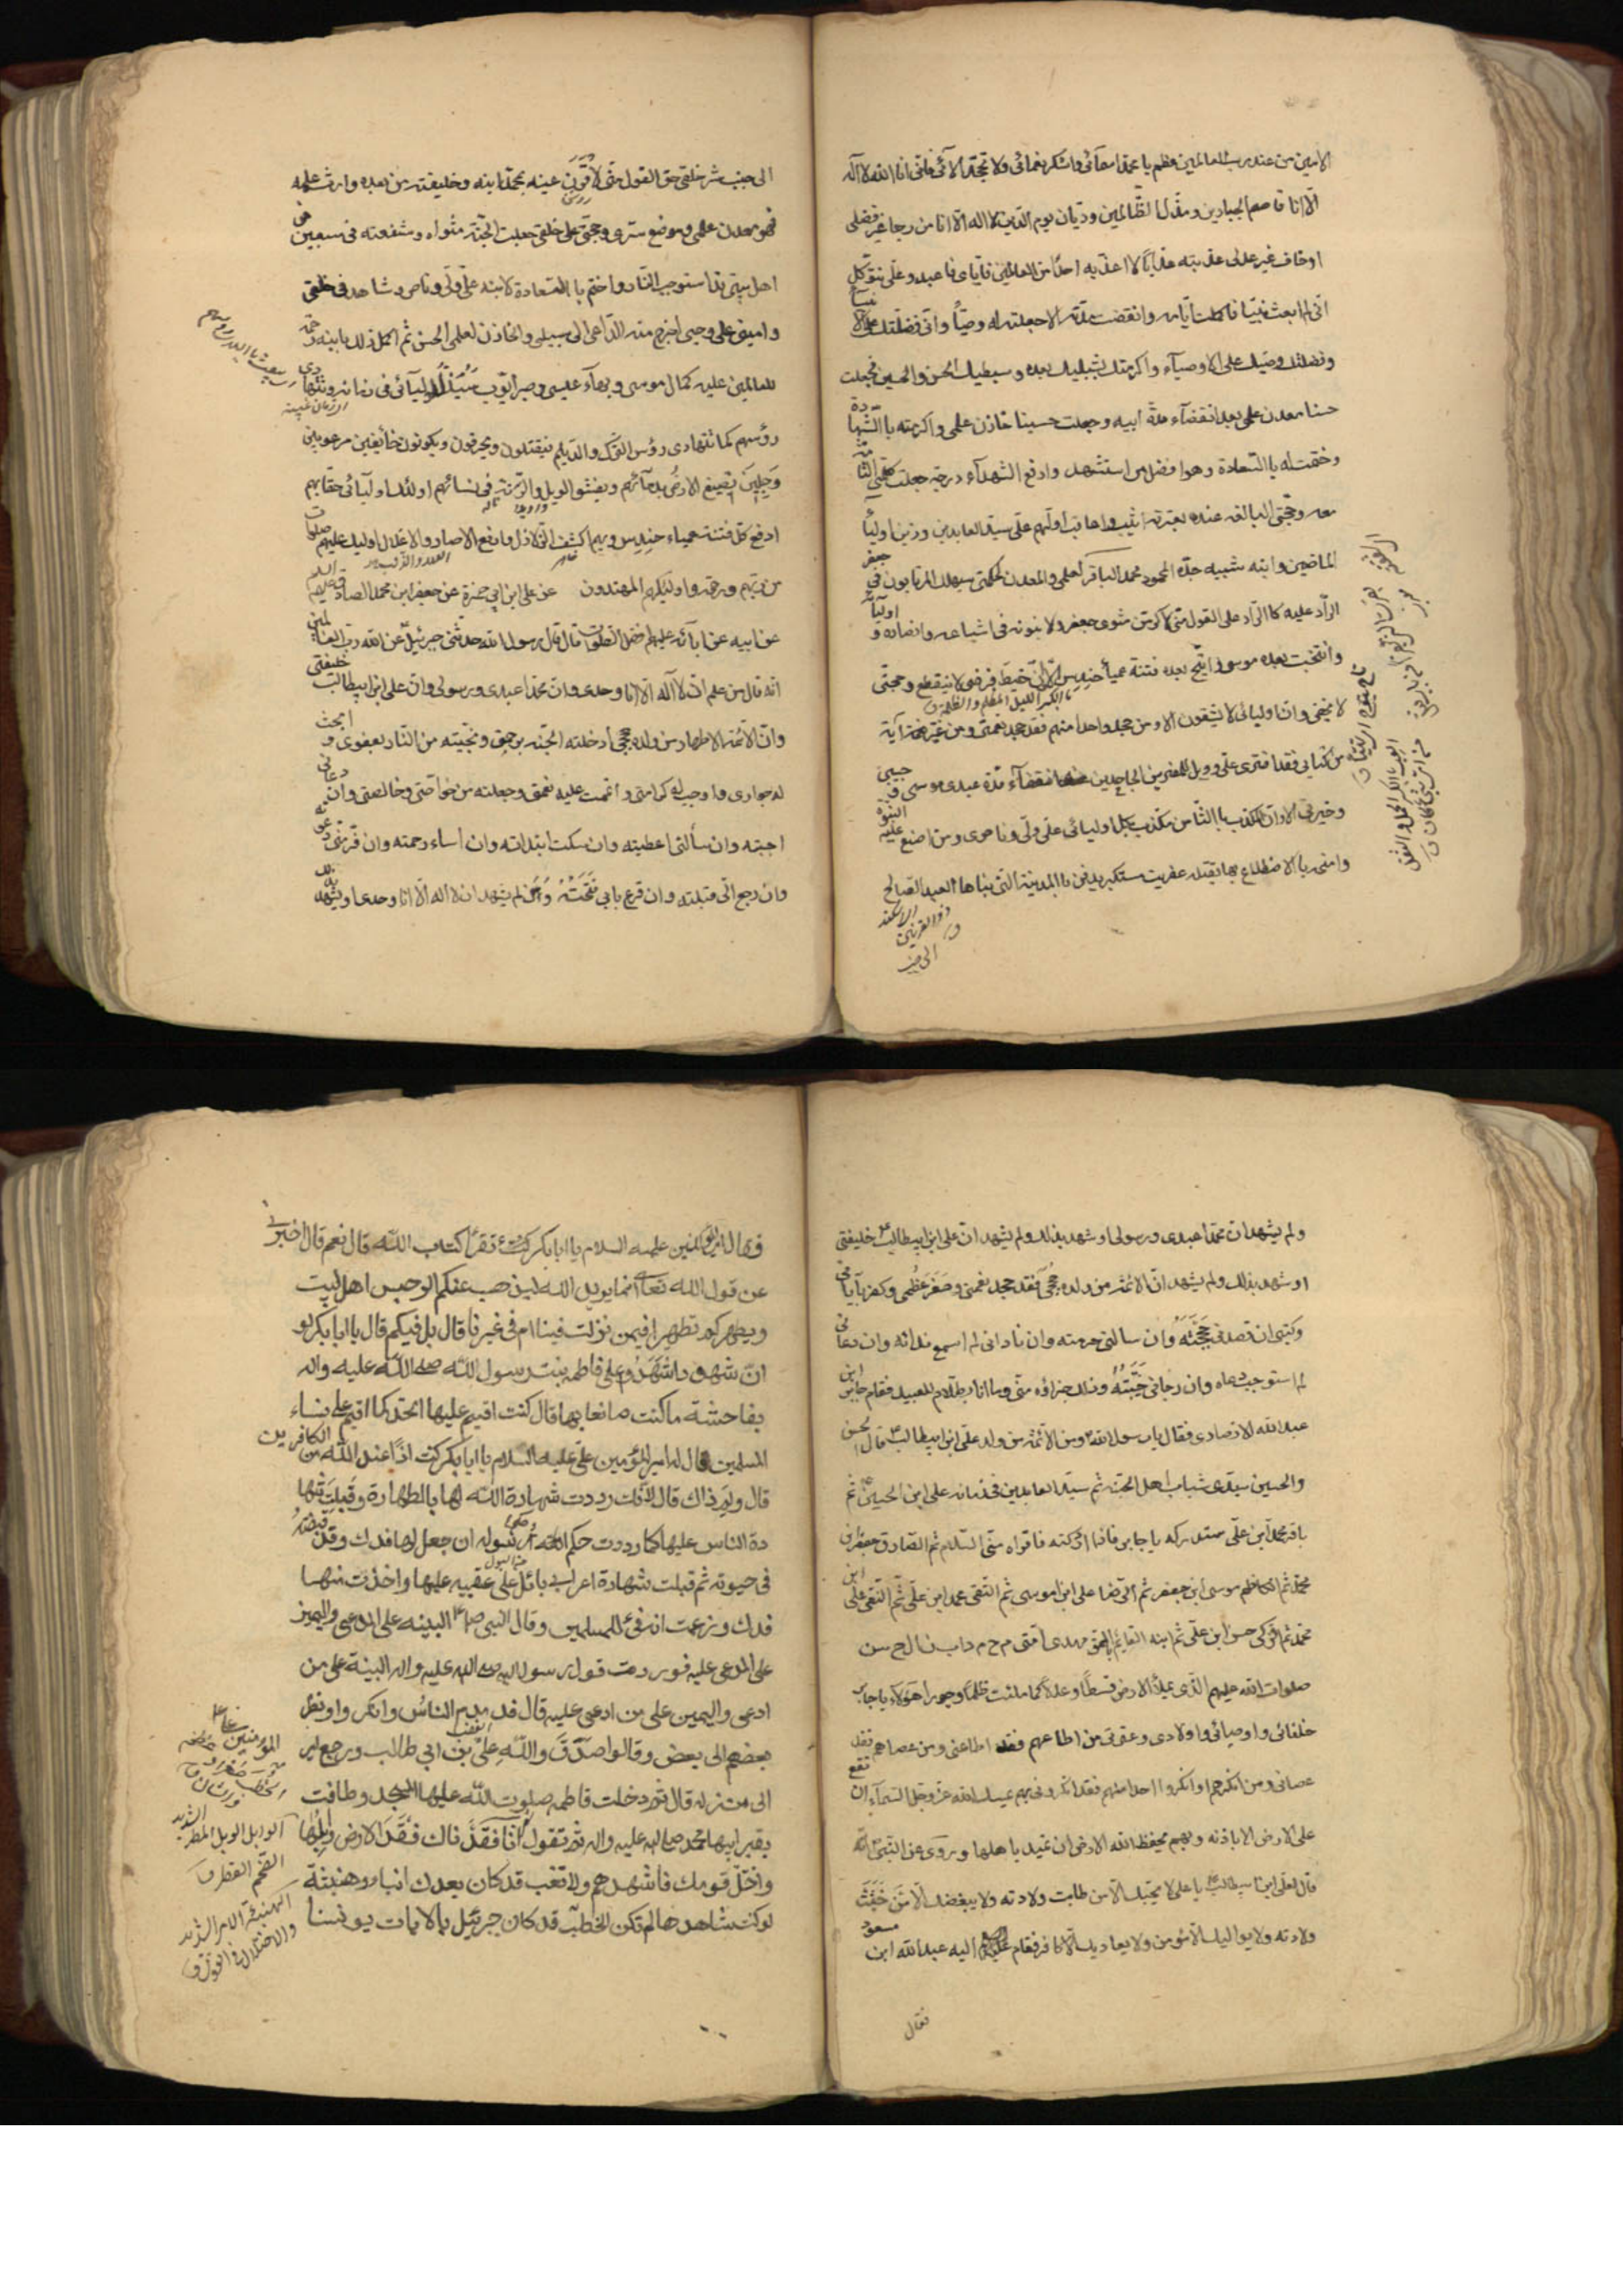 الامين من عند رب العالمين عظم يا محمد اسمآئى واشكر نعمائى ولا تجحد الآئى فانى انا الله لا اله
الا انا قاصم الجبارين ومذل الظالمين وديان يوم الدين لا اله الا انا من رجا غير فضلى
او خاف غير عدلى عذبته عذابا لا اعذب به احدا من العالمين فاياى فاعبد وعلى فتوكل
انى لم ابعث نبيا فاكملت ايامه وانقضت مدته الا جعلت له وصيا وانى فضلتك على الا نبيآ
وفضلت وصيك على الاوصيآء واكرمتك بشبليك بعده وسبطيك الحسن والحسين فجعلت
حسنا معدن علمى بعد انقضآء مدة ابيه وجعلت حسينا خازن علمى واكرمته باالشها دة
وختمت له باالسعادة وهو افضل من استشهد وارفع الشهدآء درجة جعلت كلمتى التا مة
معه وحجتى البالغه عنده بعترته اثيب واعاقب اولهم على سيد العابدين وزين اوليآ
الماضين وابنه شبيه جده المحمود محمد الباقر لعلمى والمعدن لحكمتى سيهلك المرتابون فى جعفر
الراد عليه كاالراد على القول منى لاكرمن مثوى جعفر ولاسرنه فى اشياعه وانصاره و اوليآئه
وانتخبت بعده موسى و اتيح بعده فتنة عميآء حندس لان خيط فرضى لا ينقطع وحجتى
لا تخفى وان اوليائى لا يشقون الا ومن جحد واحدا منهم فقد جحد نعمتى ومن غير آية
من كتابى فقد افترى على وويل للمفترين الجاحدين عند انقضآء مدة عبدى موسى و حبيبى
وخيرتى الا وان المكذب باالثامن مكذب بكل اوليائى على ولى وناصرى ومن اضع عليه النبوة
وامنحه باالاضطلاع بها يقتله عفريت مستكبر يدفن باالمدينة التى بناها العبد الصالح
ذو القرنين
الى جنب
الى جنب شر خلقى حق القول منى لاقرن عينه بمحمد ابنه وخليفته من بعده وارث علمه
فهو معدن علمى وموضع سرى وحجتى على خلقى جعلت الجنة مثواه وشفعته فى سبعين من
اهل بيته قد استوجب النار واختم باالسعادة لابنه على ولى وناصرى وشاهد فى خلقى
وامينى على وحيى اخرج منه الداعى الى سبيلى والخازن لعلمى الحسن ثم اكمل ذلك بابنه رحمة
للعالمين عليه كمال موسى وبهآء عيسى وصبر ايوب سيذل اوليآئى فى زمانه ويتها دى
رؤسهم كما تتهادى رؤس الترك والديلم فيقتلون ويحرقون ويكونون خائفين مرعوبين
وجلين تصبغ الارض بدمآئهم ويفشو الويل والرنة فى نسائهم اولئك اوليآئى حقا بهم
ادفع كل فتنة عمياء حندس وبهم اكشف الزلازل وادفع الاصار والاغلال اوليك عليهم صلوات
من ربهم ورحمة واوليك هم المهتدون عن على ابن ابى حمزة عن جعفر ابن محمد الصادق
عن ابيه عن ابآئه عليهم افضل الصلوات قال قال رسول الله حدثنى جبرئيل عن الله رب العا لمين
انه قال من علم ان لا اله الا انا وحدى وان محمدا عبدى ورسولى وان على ابن ابيطالب خليفتى
وان الائمة الاطهار من ولده حججى ادخلته الجنة برحمتى ونجيته من النار بعفوى و ابحت
له جوارى واوجب له كرامتى واتممت عليه نعمتى وجعلته من خواصى وخالصتى وان دعانى
اجبته وان سألنى اعطيته وان سكت ابتدأته وان اساء رحمته وان فر منى دعوته
وان رجع الى قبلته وان قرع بابى فتحته ومن لم يشهد ان لا اله الا انا وحدى او يشهد بذلك
ولم يشهد ان محمدا عبدى ورسولى او شهد بذلك ولم يشهد ان على ابن ابيطالب خليفتى
او شهد بذلك ولم يشهد ان الائمة من ولده حججى فقد جحد نعمتى وصغر عظمتى وكفر بآياتى
وكتبى ان قصدنى حجبته وان سالنى حرمته وان نادانى لم اسمع ندائه وان دعانى
لم استوجب دعاه وان رجانى خيبته وذلك جزاؤه منى وما انا بظلام للعبيد فقام جابر ابن
عبد الله الانصارى فقال يا رسول الله ومن الائمة من ولد على ابن ابيطالب قال الحسن
والحسين سيدى شباب اهل الجنة ثم سيد العابدين فى زمانه على ابن الحسين ثم
باقر محمد ابن على ستدركه يا جابر فاذا ادركته فاقراه منى السلام ثم الصادق جعفر ابن
محمد ثم الكاظم موسى ابن جعفر ثم الرضا على ابن موسى ثم التقى محمد ابن على ثم النقى على ابن
محمد ثم الزكى حسن ابن على ثم ابنه القائم بالحق مهدى امتى م ح م د
صلوات الله عليهم الذى يملأ الارض قسطا وعدلا كما ملئت ظلما وجورا هؤلآء يا جابر
خلفائى واوصيائى واولادى وعترتى من اطاعهم فقد اطاعنى ومن عصاهم فقد
عصانى ومن انكرهم او انكروا احدا منهم فقد انكرونى بهم يمسك الله عز وجل السمآء ان تقع
على الارض الا باذنه وبهم يحفظ الله الارض ان تميد باهلها وروى عن النبى انه
قال لعلى ابن ابيطالب يا على لا يحبك الا من طابت ولادته ولا يبغضك الا من خبثت
ولادته ولا يواليك الا مؤمن ولا يعاديك الا كافر فقام اليه عبد الله ابن مسعود
فقال
فقال امير المؤمنين عليه السلام يا ابا بكر كنت تقرأ كتاب الله قال نعم قال اخبرنى
عن قول الله تعا انما يريد الله ليذهب عنكم الرجس اهل البيت
ويطهركم تطهيرا فيمن نزلت فينا ام فى غيرنا قال بل فيكم قال يا ابا بكر لو
ان شهود اشهدوا على فاطمه بنت رسول الله صلى الله عليه واله
بفاحشة ما كنت صانعا بها قال كنت اقيم عليها الحد كما اقيم على نساء
المسلمين قال له امير المؤمنين على عليه السلام يا ابا بكر كنت اذا عند الله من الكافرين
قال ولم ذاك قال لانك رددت شهادة الله لها بالطهارة وقبلت شها
دة الناس عليها كما رددت حكم الله وحكم رسوله ان جعل لها فدك وقد قبضته
فى حيوته ثم قبلت شهادة اعرابى بائل على عقبيه عليها واخذت منها
فدك وزعمت انه فىء للمسلمين وقال النبى صلعم البينه على المدعى واليمين
على المدعى عليه فرددت قول رسول الله صلى الله عليه واله البينة على من
ادعى واليمين على من ادعى عليه قال فدمدم الناس وانكروا ونظر
بعضهم الى بعض وقالوا صدق والله على بن ابى طالب ورجع امير المؤمنين
الى منزله قال ثم دخلت فاطمه صلوت الله عليها المسجد وطافت
بقبر ابيها محمد صلى الله عليه واله ثم تقول انا فقدناك فقد الارض وابلها
واختل قومك فاشهدهم ولا تغب قد كان بعدك انباء وهنبثة
لو كنت شاهدها لم تكن الخطب قد كان جبرئيل بالايات يونسنا
الوابل الوبل المطر الشديد
الهنبثة الامر الشديد
والاختلاط فى القول ق